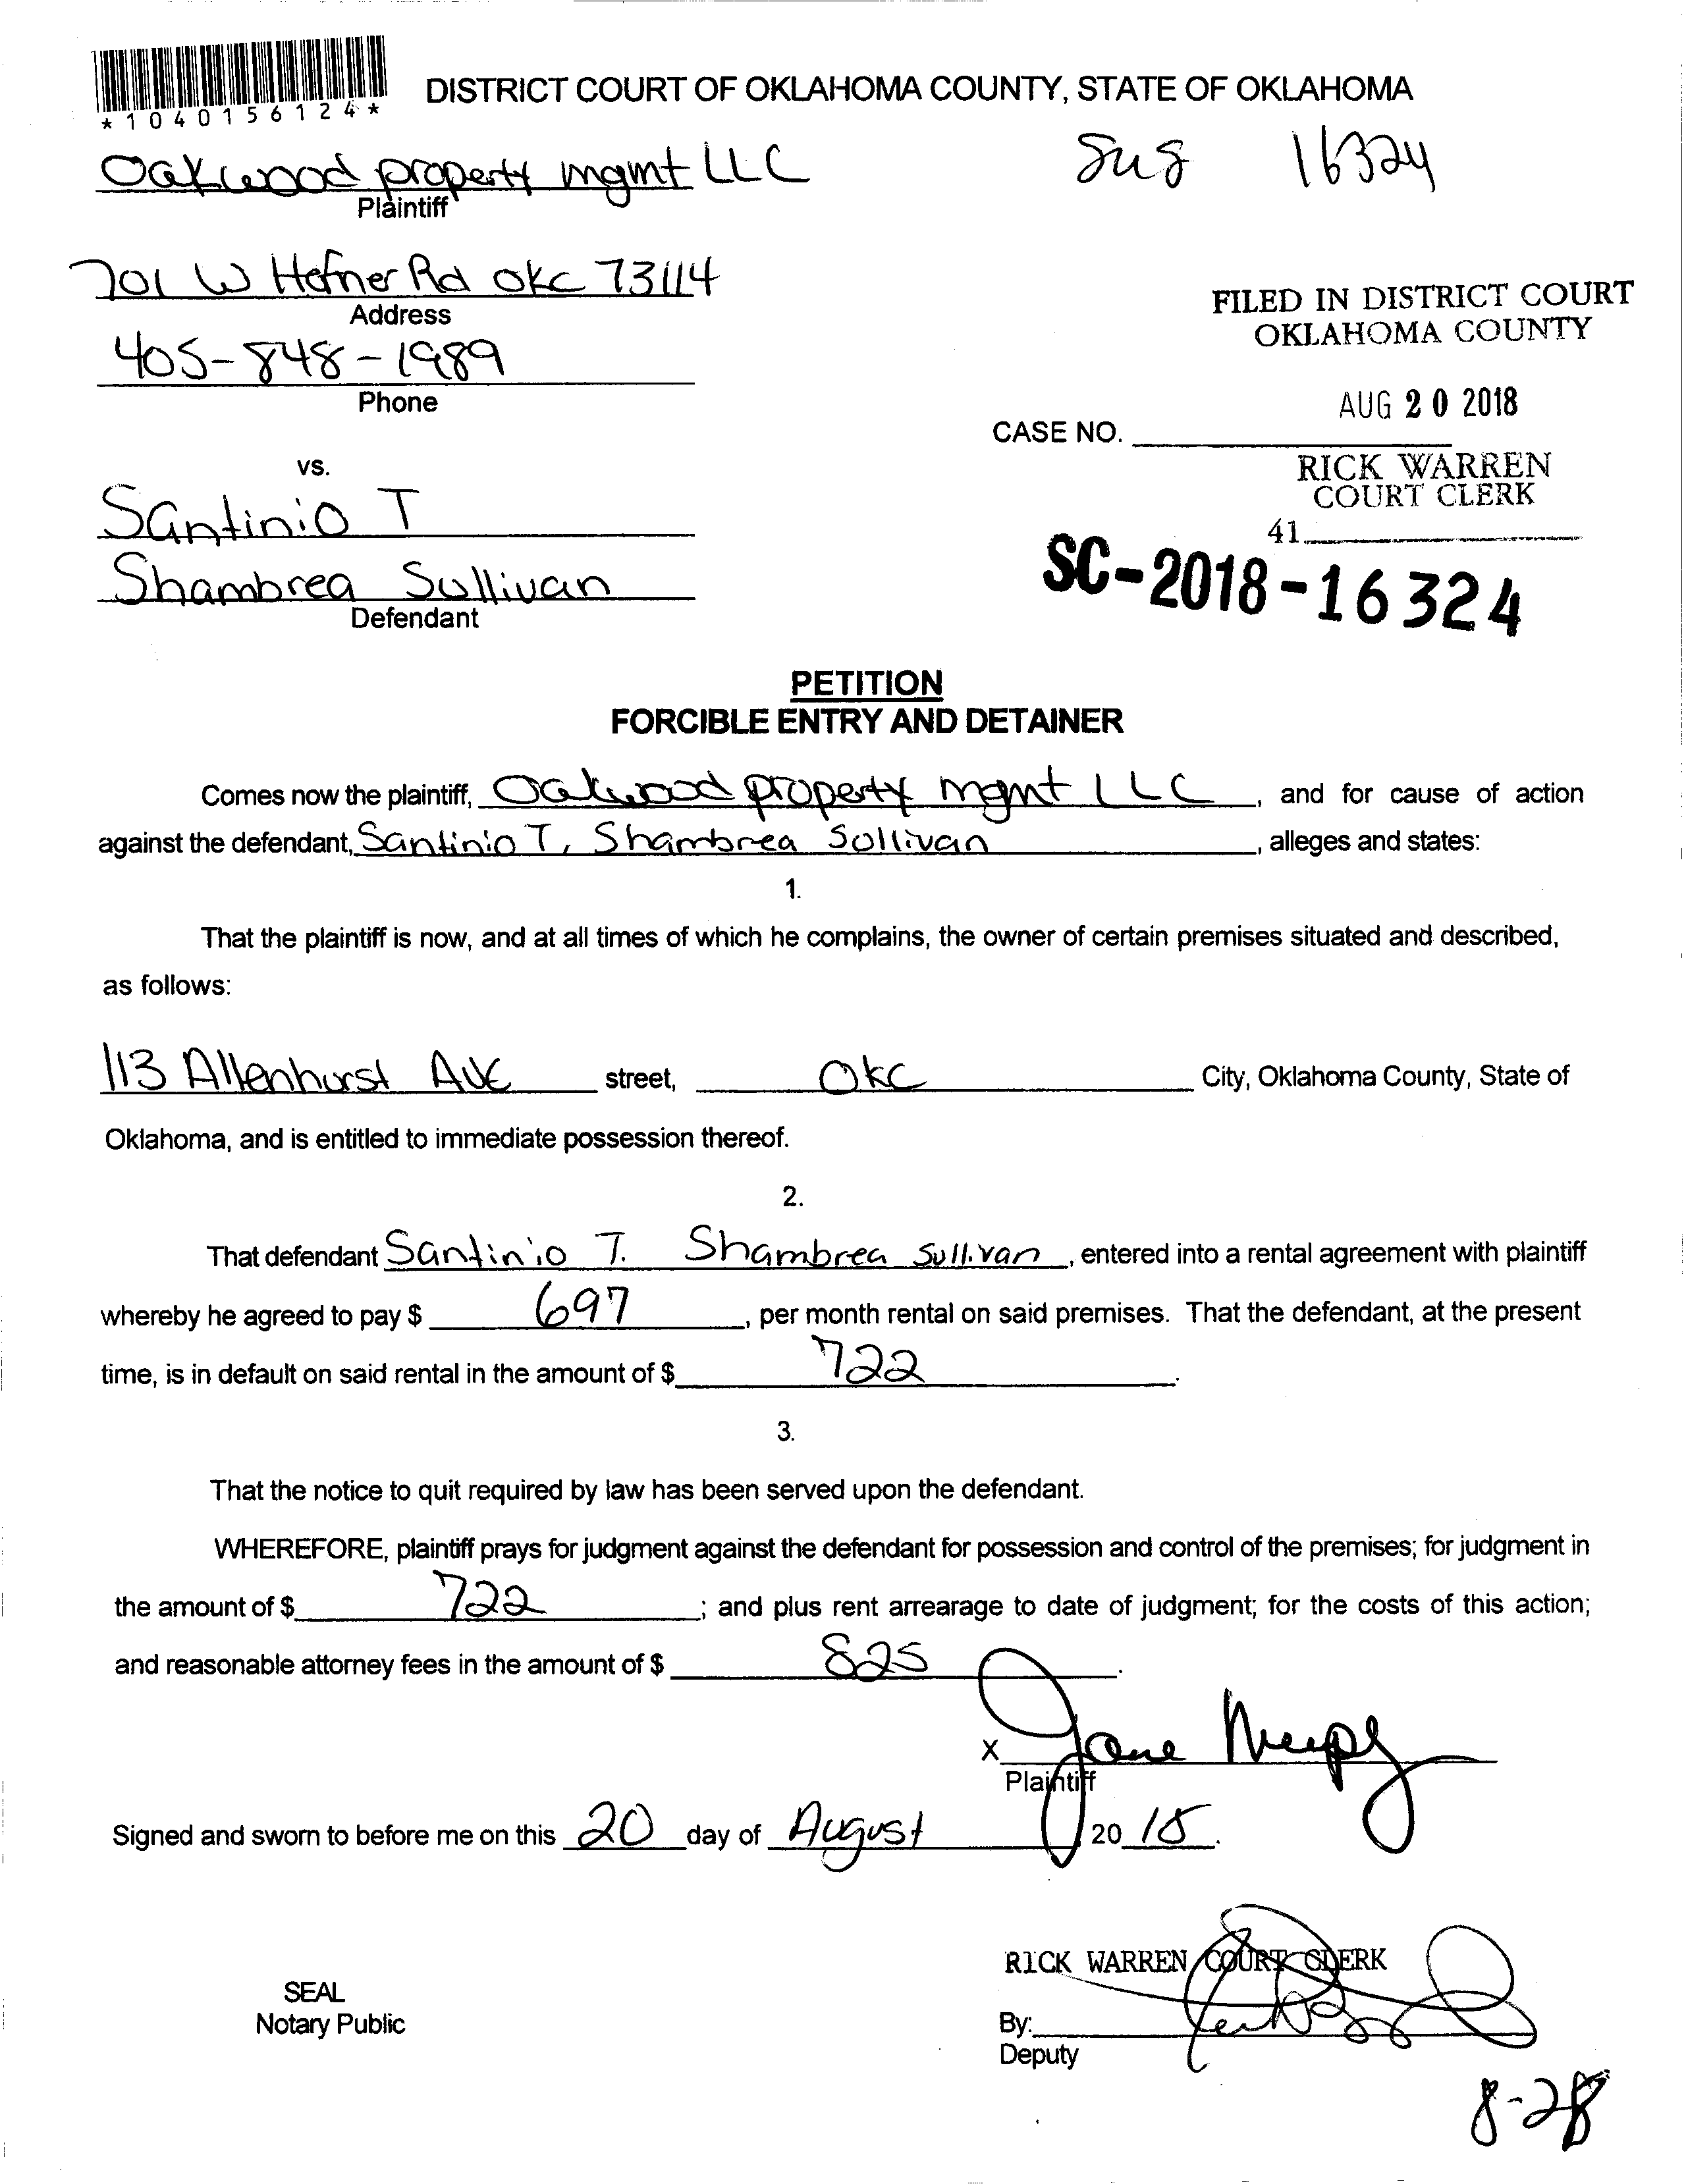 *1040156124*
DISTRICT COURT OF OKLAHOMA COUNTY, STATE OF OKLAHOMA
Oakwood property mgmt LLC
16324
Plaintiff
701 W Hefner Rd OKC 73114
Address
405-848-1989
Phone
FILED IN DISTRICT COURT
OKLAHOMA COUNTY
AUG 20 2018
CASE NO.
RICK WARREN
COURT CLERK
41
SC-2018-16324
vs.
Santinio T
Shambrea Sullivan
Defendant
PETITION
FORCIBLE ENTRY AND DETAINER
Comes now the plaintiff, Oakwood property mgmt LLC, and for cause of action
against the defendant, Santinio T, Shambrea Sullivan, alleges and states:
1.
That the plaintiff is now, and at all times of which he complains, the owner of certain premises situated and described,
as follows:
113 Allenhurst Ave street, OKC City, Oklahoma County, State of
Oklahoma, and is entitled to immediate possession thereof.
2.
That defendant Santinio T. Shambrea Sullivan, entered into a rental agreement with plaintiff
whereby he agreed to pay $ 697, per month rental on said premises. That the defendant, at the present
time, is in default on said rental in the amount of $ 722.
3.
That the notice to quit required by law has been served upon the defendant.
WHEREFORE, plaintiff prays for judgment against the defendant for possession and control of the premises; for judgment in
the amount of $ 722; and plus rent arrearage to date of judgment; for the costs of this action;
and reasonable attorney fees in the amount of $ 825.
X Jane
Plaintiff
Signed and sworn to before me on this 20 day of August 2018.
RICK WARREN COURT CLERK
SEAL
Notary Public
By:
Deputy
8-28